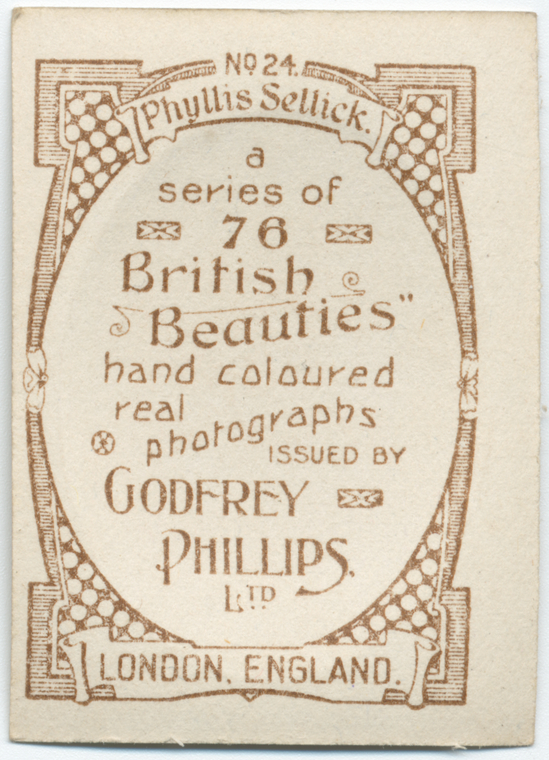 No 24.
Phyllis Sellick.
a
series of
76
British
Beauties"
hand coloured
real
photographs
ISSUED BY
GODFREY
PHILLIPS.
LTD
LONDON, ENGLAND.